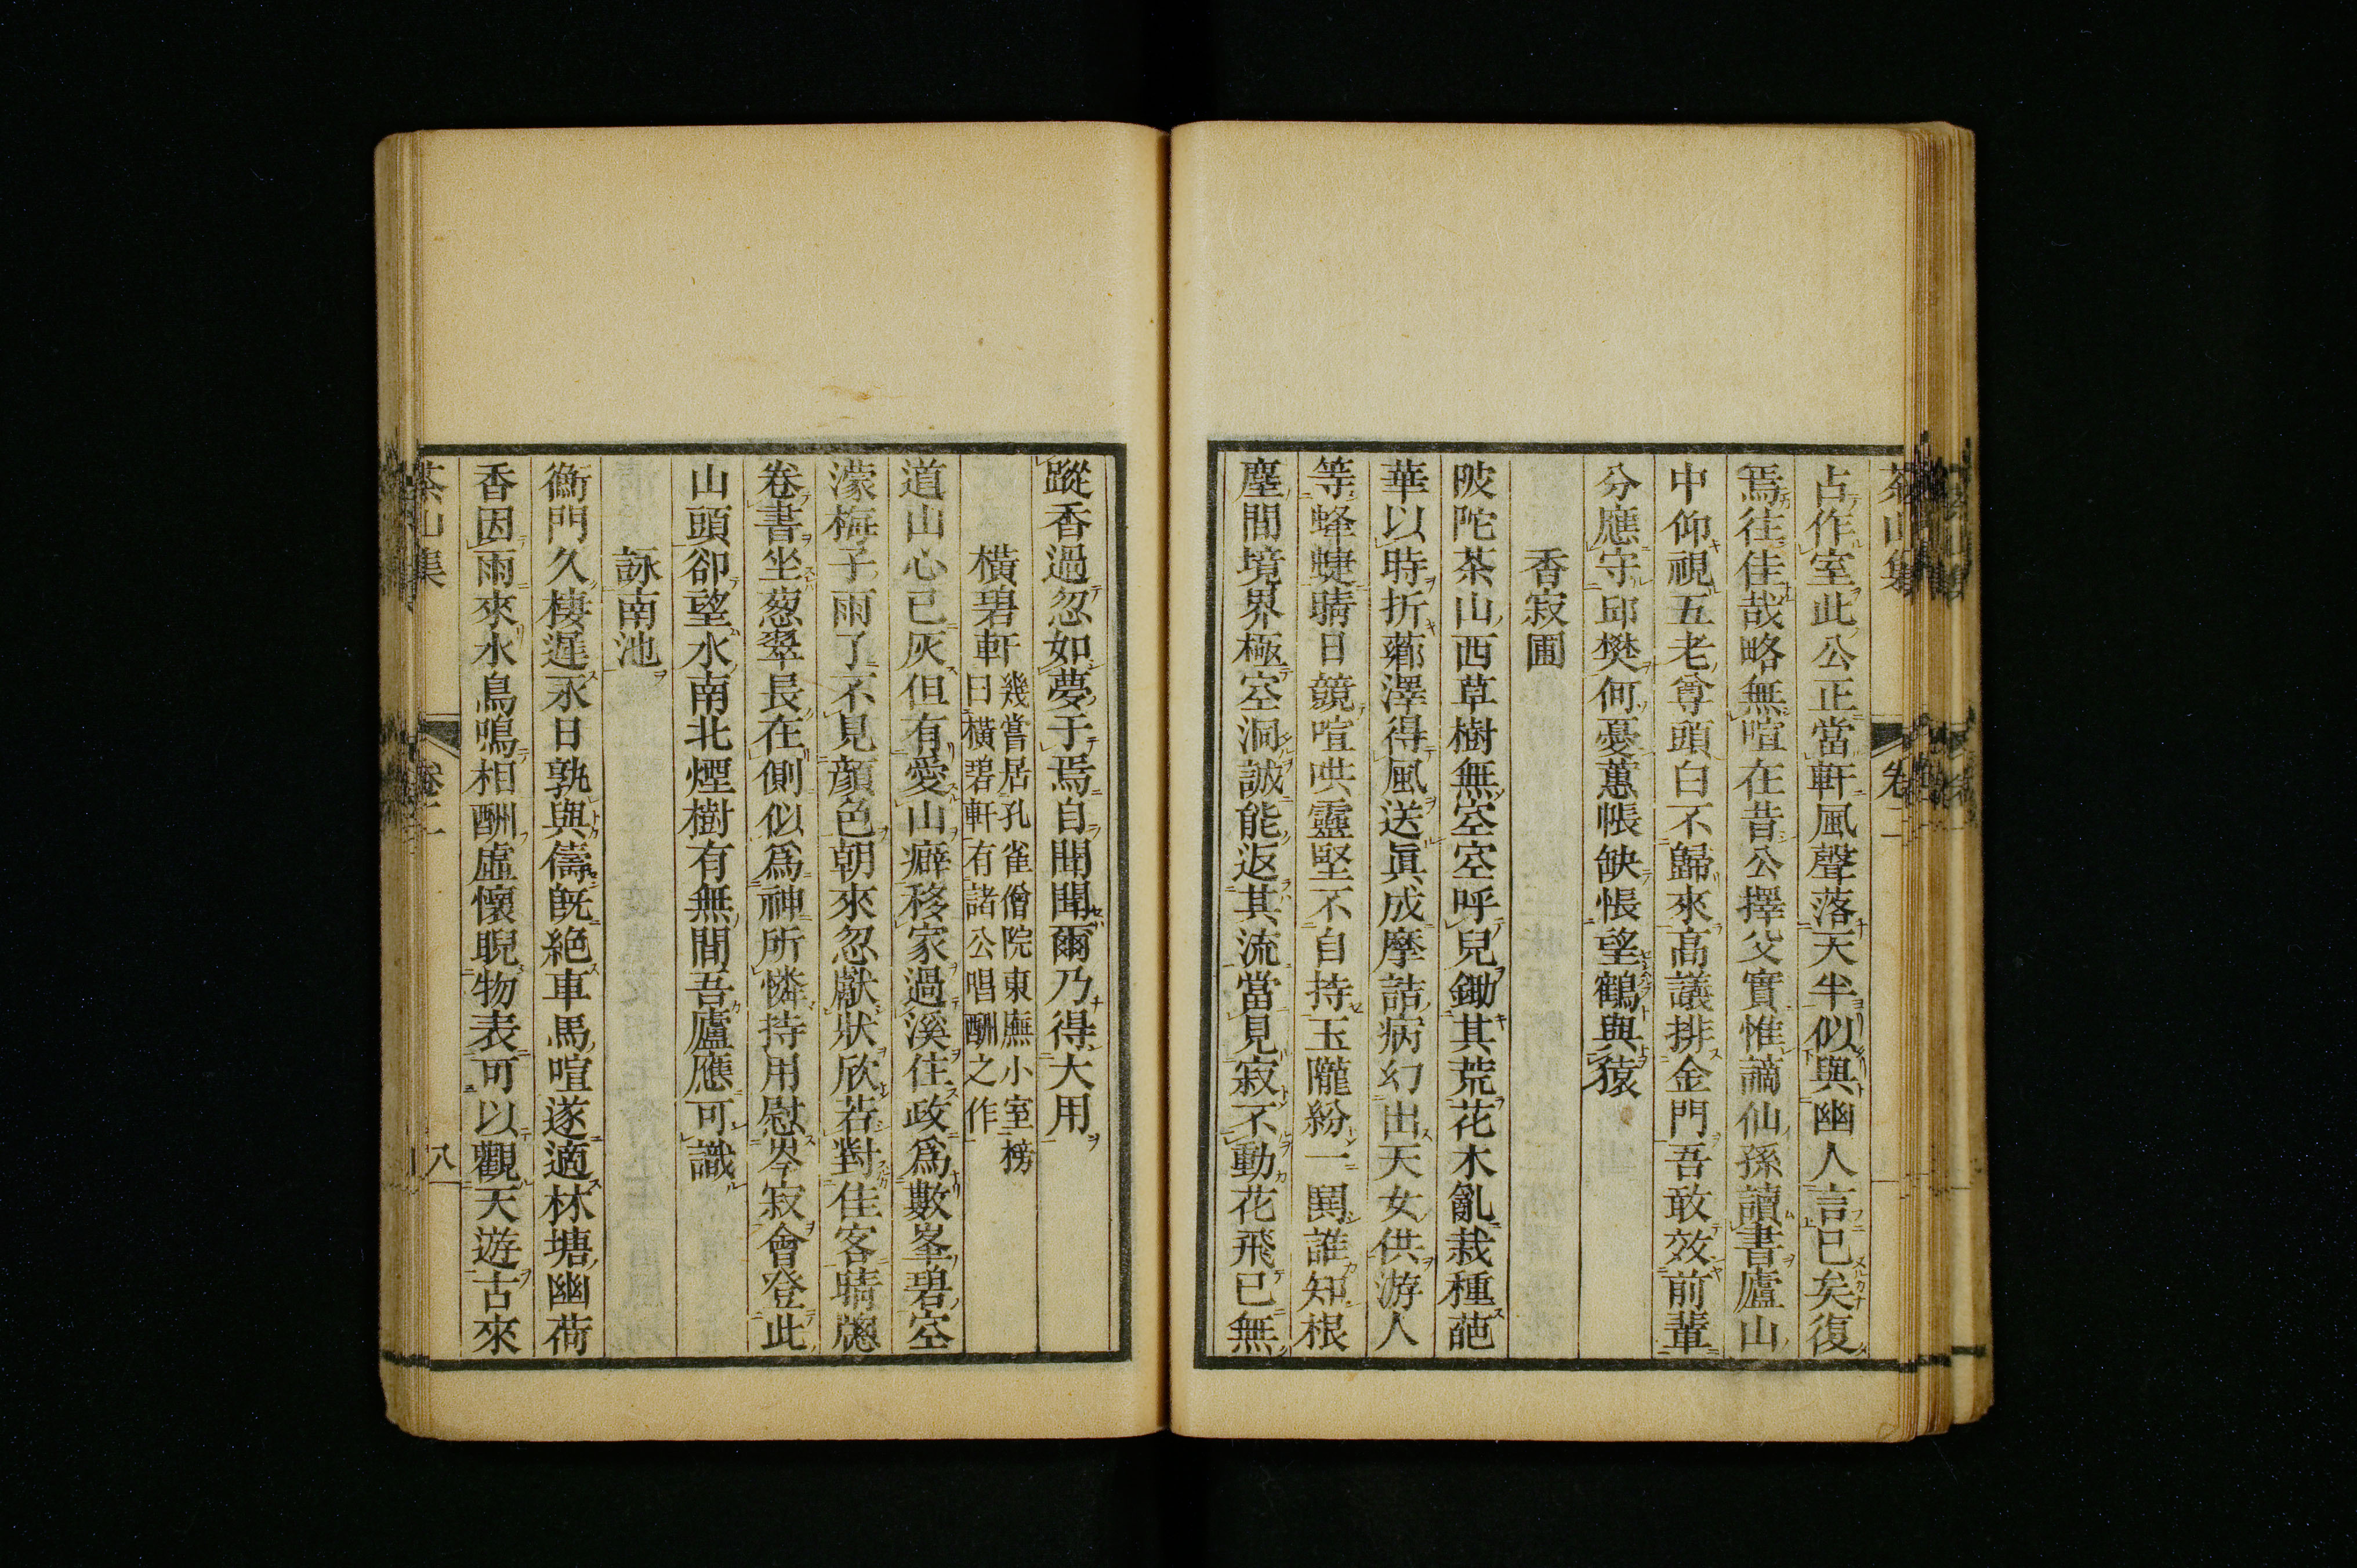 茶山集 卷二
占作室此公正當軒風聲落天半似與幽人言已矣復
焉往佳哉略無喧在昔公擇父實惟謫仙孫讀書廬山
中仰視五老尊頭白不歸來高議排金門吾敢效前輩
分應守邱樊何憂蕙帳缺悵望鶴與猿
香寂圃
陂陀茶山西草樹無空空呼兒鋤其荒花木亂栽種葩
華以時折薌澤得風送眞成摩詰病幻出天女供游人
等蜂蜨晴日競喧哄靈堅不自持玉隴紛一鬨誰知根
塵間境界極空洞誠能返其流當見寂不動花飛已無
蹤香過忽如夢于焉自聞聞爾乃得大用
橫碧軒 幾嘗居孔雀僧院東廡小室榜
曰橫碧軒有諸公唱酬之作
道山心已灰但有愛山癖移家過溪住政爲數峯碧空
濛梅子雨了不見顔色朝來忽獻狀欣若對佳客晴牕
卷書坐葱翠長在側似爲神所憐持用慰岑寂會登此
山頭卻望水南北煙樹有無間吾廬應可識
詠南池
衡門久棲遲永日孰與儔旣絕車馬喧遂適林塘幽荷
香因雨來水鳥鳴相酬虛懷睨物表可以觀天遊古來
茶山集 卷二 八